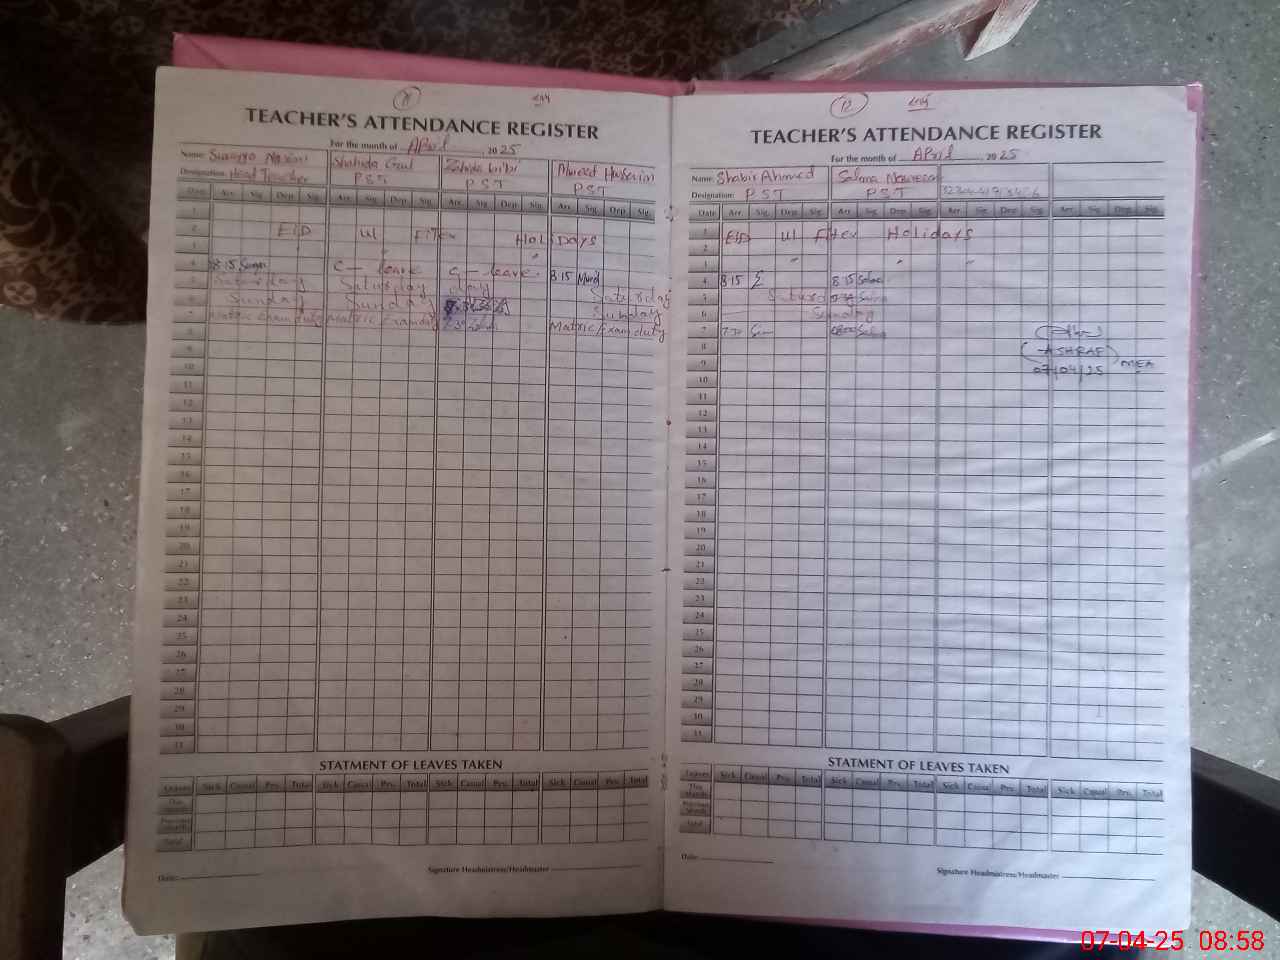 11
TEACHER'S ATTENDANCE REGISTER
For the month of APRil 2025
Name: Shahida Gul Zahida bibi Murad Hussain
Designation: Head Teacher PST PST PST
Date Arr. Sig. Dep. Sig. Arr. Sig. Dep. Sig. Arr. Sig. Dep. Sig. Arr. Sig. Dep. Sig.
1
2 EiD ul FiTer Holi Days
3
4 8:15 C- leave C- leave. 8 15 Murad
5 Saturday Saturday day Saturday
6 Sunday Sunday Sunday
7 Matric Exam duty Matric Examduty Matric Exam duty
8
9
10
11
12
13
14
15
16
17
18
19
20
21
22
23
24
25
26
27
28
29
30
31
STATMENT OF LEAVES TAKEN
Leaves Sick Casual Prv. Total Sick Casual Prv. Total Sick Casual Prv. Total Sick Casual Prv. Total
This Month
Previous Month
Total
Date:
Signature Headmistress/Headmaster
12
TEACHER'S ATTENDANCE REGISTER
For the month of APRil 2025
Name: Shabir Ahmed Salma Noureen
Designation: PST PST
Date Arr. Sig. Dep. Sig. Arr. Sig. Dep. Sig. Arr. Sig. Dep. Sig. Arr. Sig. Dep. Sig.
1 EiD ul Fiter Holidays
2
3 " " "
4 8 15 8 15 Salma
5
6 Sunday
7 7 30
8 ASHRAF
9 07/04/25 MEA
10
11
12
13
14
15
16
17
18
19
20
21
22
23
24
25
26
27
28
29
30
31
STATMENT OF LEAVES TAKEN
Leaves Sick Casual Prv. Total Sick Casual Prv. Total Sick Casual Prv. Total Sick Casual Prv. Total
This Month
Previous Month
Total
Date:
Signature Headmistress/Headmaster
07-04-25 08:58